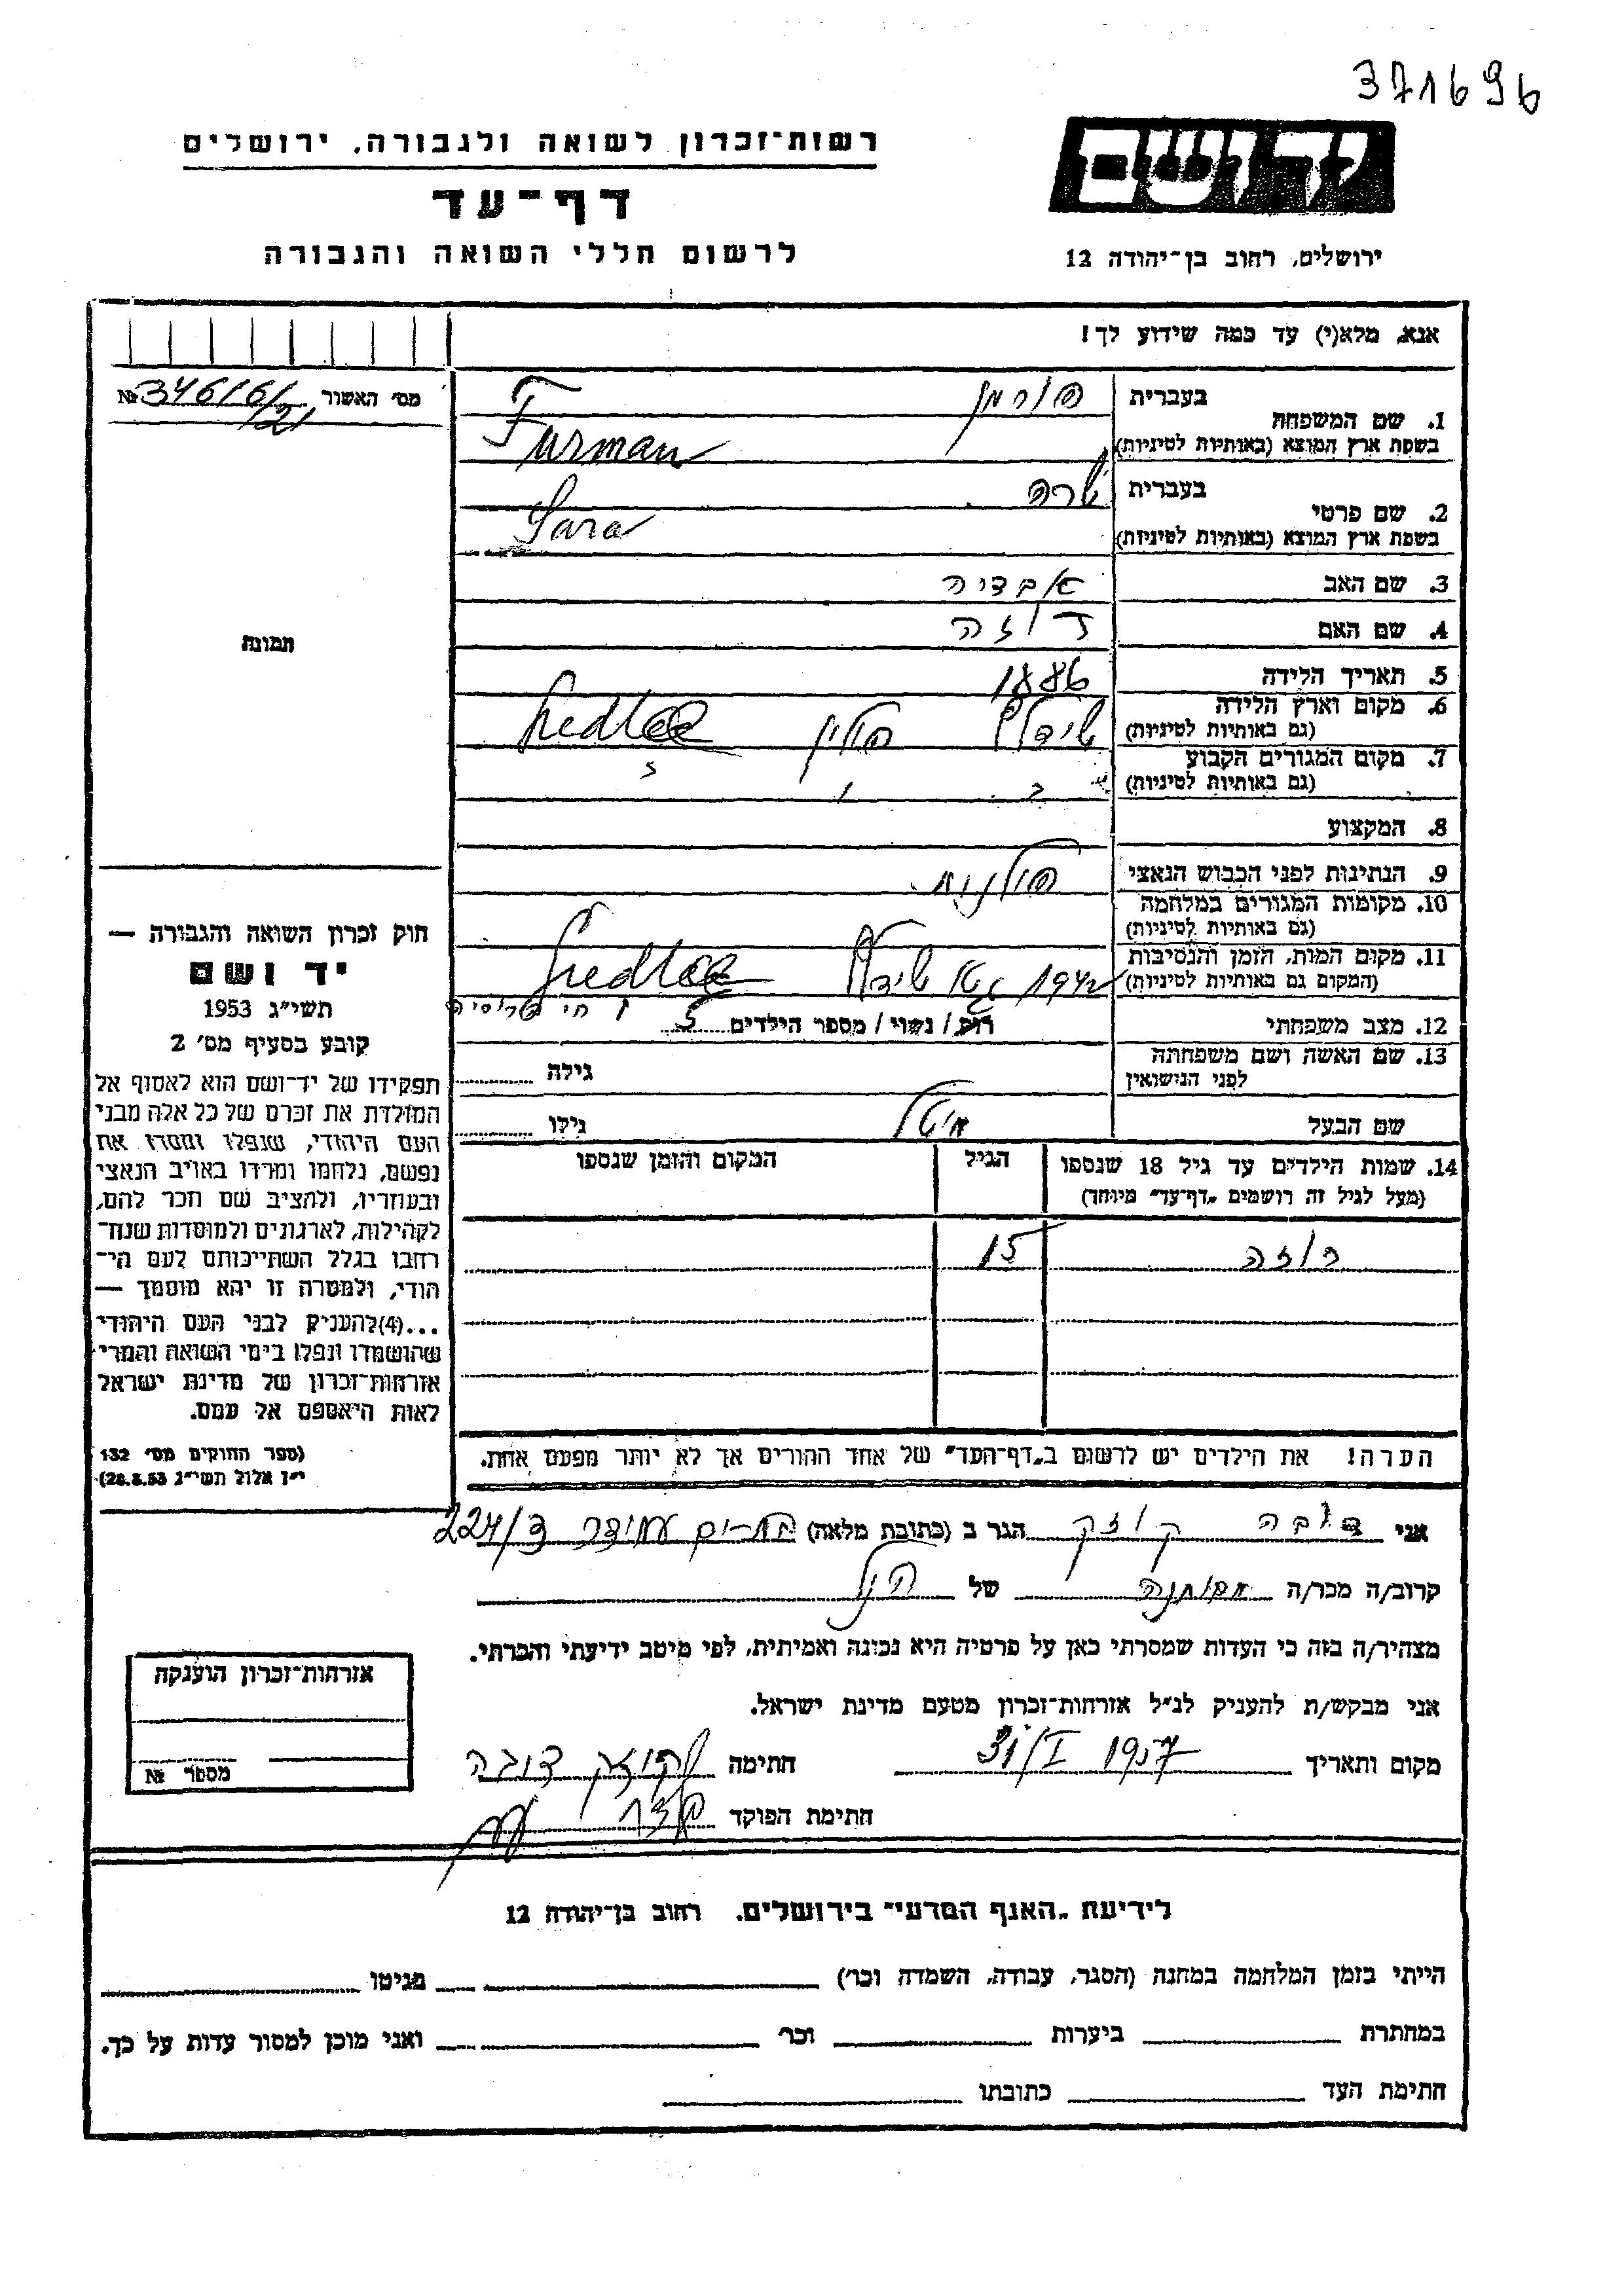 371696
רשות־זכרון לשואה ולגבורה, ירושלים
דף־עד
לרשום חללי השואה והגבורה
יד ושם
ירושלים, רחוב בן־יהודה 12
אנא, מלא(י) עד כמה שידוע לך!
מס' האשור №
1. שם המשפחה
בעברית פורמן
בשפת ארץ המוצא (באותיות לטיניות) Furman
2. שם פרטי
בעברית שרה
בשפת ארץ המוצא (באותיות לטיניות) Sara
3. שם האב
4. שם האם
5. תאריך הלידה 1886
6. מקום וארץ הלידה
(גם באותיות לטיניות) פולין
7. מקום המגורים הקבוע
(גם באותיות לטיניות)
8. המקצוע
9. הנתינות לפני הכבוש הנאצי פולנית
10. מקומות המגורים במלחמה
(גם באותיות לטיניות)
11. מקום המות, הזמן והנסיבות
(המקום גם באותיות לטיניות) 1942
12. מצב משפחתי רוק / נשוי / מספר הילדים 5
13. שם האשה ושם משפחתה
לפני הנישואין גילה
שם הבעל גילו
14. שמות הילדים עד גיל 18 שנספו הגיל המקום והזמן שנספו
(מעל לגיל זה רושמים "דף־עד" מיוחד)
רוזה 15
הערה! את הילדים יש לרשום ב"דף־העד" של אחד ההורים אך לא יותר מפעם אחת.
תמונה
חוק זכרון השואה והגבורה —
יד ושם
תשי"ג 1953
קובע בסעיף מס' 2
תפקידו של יד־ושם הוא לאסוף אל
המולדת את זכרם של כל אלה מבני
העם היהודי, שנפלו ומסרו את
נפשם, נלחמו ומרדו באויב הנאצי
ובעוזריו, ולהציב שם וזכר להם,
לקהילות, לארגונים ולמוסדות שנח־
רבו בגלל השתייכותם לעם הי־
הודי, ולמטרה זו יהא מוסמך —
...(4)להעניק לבני העם היהודי
שהושמדו ונפלו בימי השואה והמרי
אזרחות־זכרון של מדינת ישראל
לאות היאספם אל עמם.
(ספר החוקים מס' 132
י"ז אלול תשי"ג 28.8.53)
אני דובה קוזק הגר ב (כתובת מלאה) 224/3
קרוב/ה מכר/ה של הנ"ל
מצהיר/ה בזה כי העדות שמסרתי כאן על פרטיה היא נכונה ואמיתית, לפי מיטב ידיעתי והכרתי.
אני מבקש/ת להעניק לנ"ל אזרחות־זכרון מטעם מדינת ישראל.
מקום ותאריך 31/I 1957 חתימה קוזק דובה
חתימת הפוקד
אזרחות־זכרון הוענקה
מספר №
לידיעת "האגף המדעי" בירושלים, רחוב בן־יהודה 12
הייתי בזמן המלחמה במחנה (הסגר, עבודה, השמדה וכו') בגיטו
במחתרת ביערות וכו' ואני מוכן למסור עדות על כך.
חתימת העד כתובתו